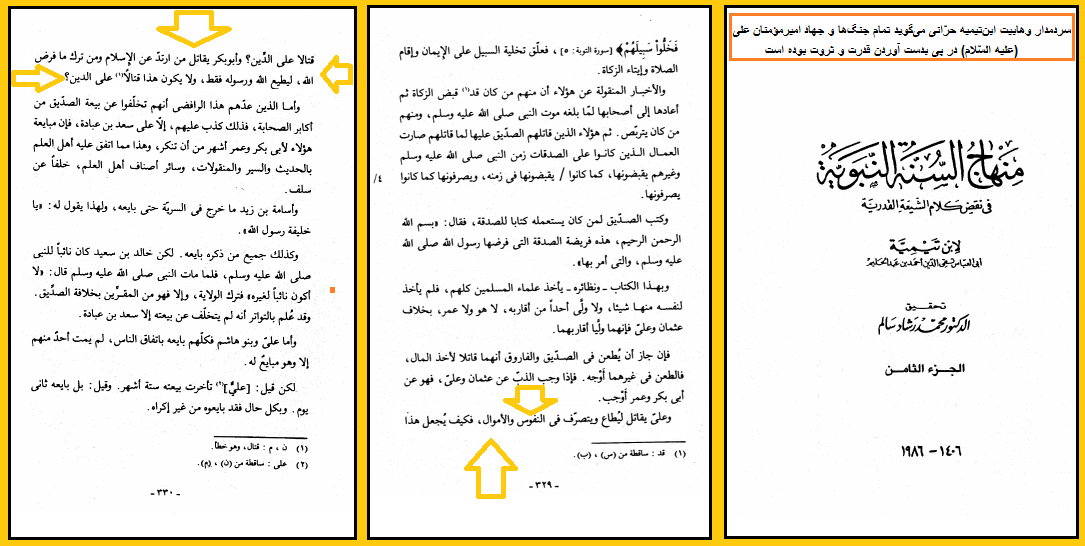 سردمدار وهابیت ابن‌تیمیه حرّانی می‌گوید تمام جنگ‌ها و جهاد امیرمؤمنان علی
(علیه السّلام) در پی بدست آوردن قدرت و ثروت بوده است
منهاج السنة النبوية
فى نقض كلام الشيعة القدرية
لابن تيمية
أبى العباس تقى الدين أحمد بن عبد الحليم
تحقيق
الدكتور محمد رشاد سالم
الجزء الثامن
١٤٠٦ - ١٩٨٦
فَخَلُّواْ سَبِيلَهُمْ﴾ [سورة التوبة : ٥] ، فعلّق تخلية السبيل على الإيمان وإقام
الصلاة وإيتاء الزكاة.
والأخبار المنقولة عن هؤلاء أن منهم من كان قد(١) قبض الزكاة ثم
أعادها إلى أصحابها لمّا بلغه موت النبى صلى الله عليه وسلم، ومنهم
من كان يتربّص. ثم هؤلاء الذين قاتلهم الصدّيق عليها لما قاتلهم صارت
العمال الذين كانوا على الصدقات زمن النبى صلى الله عليه وسلم
وغيرهم يقبضونها، كما كانوا / يقبضونها فى زمنه، ويصرفونها كما كانوا
٤/
يصرفونها.
وكتب الصدّيق لمن كان يستعمله كتابا للصدقة، فقال: «بسم الله
الرحمن الرحيم، هذه فريضة الصدقة التى فرضها رسول الله صلى الله
عليه وسلم، والتى أمر بها».
وبهذا الكتاب ـ ونظائره ـ يأخذ علماء المسلمين كلهم، فلم يأخذ
لنفسه منها شيئا، ولا ولَّى أحداً من أقاربه، لا هو ولا عمر، بخلاف
عثمان وعلىّ فإنهما ولَّيا أقاربهما.
فإن جاز أن يُطعن فى الصدّيق والفاروق أنهما قاتلا لأخذ المال،
فالطعن فى غيرهما أوْجه. فإذا وجب الذبّ عن عثمان وعلىّ، فهو عن
أبى بكر وعمر أوْجب.
وعلىّ يقاتل ليُطاع ويتصرّف فى النفوس والأموال، فكيف يُجعل هذا
(١) قد : ساقطة من (س) ، (ب).
- ٣٢٩ -
قتالا على الدِّين؟ وأبوبكر يقاتل من ارتدّ عن الإسلام ومن ترك ما فرض
الله، ليطيع الله ورسوله فقط، ولا يكون هذا قتالاً(١) على الدين؟
وأما الذين عدّهم هذا الرافضى أنهم تخلّفوا عن بيعة الصدّيق من
أكابر الصحابة، فذلك كذب عليهم، إلّا على سعد بن عبادة، فإن مبايعة
هؤلاء لأبى بكر وعمر أشهر من أن تنكر، وهذا مما اتفق عليه أهل العلم
بالحديث والسير والمنقولات، وسائر أصناف أهل العلم، خلفاً عن
سلف.
وأسامة بن زيد ما خرج فى السريّة حتى بايعه، ولهذا يقول له: «يا
خليفة رسول الله».
وكذلك جميع من ذكره بايعه. لكن خالد بن سعيد كان نائباً للنبى
صلى الله عليه وسلم، فلما مات النبى صلى الله عليه وسلم قال: «لا
أكون نائباً لغيره» فترك الولاية، وإلا فهو من المقرّين بخلافة الصدِّيق.
وقد عُلم بالتواتر أنه لم يتخلّف عن بيعته إلا سعد بن عبادة.
وأما علىّ وبنو هاشم فكلّهم بايعه باتفاق الناس، لم يمت أحدٌ منهم
إلا وهو مبايعٌ له.
لكن قيل: [عليٌّ](٢) تأخرت بيعته ستة أشهر. وقيل: بل بايعه ثانى
يوم. وبكل حال فقد بايعوه من غير إكراه.
(١) ن ، م : قتال، وهو خطأ.
(٢) على : ساقطة من (ن) ، (م).
- ٣٣٠ -